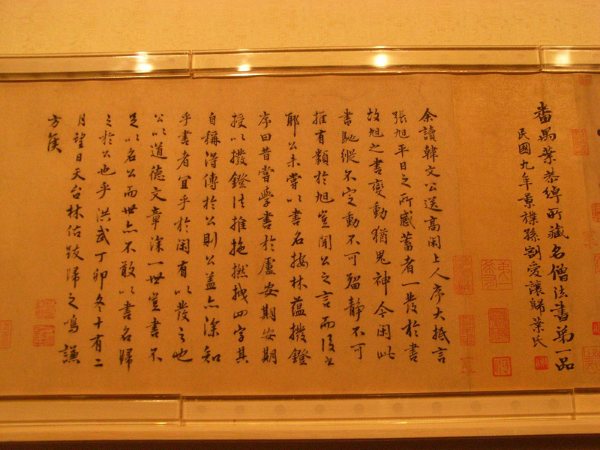 番禺葉恭綽所藏名僧法書第一品
民國九年景樸孫割愛讓歸葉氏
余讀韓文公送高閑上人序大抵言
張旭平日之所感蓄者一發於書
故旭之書變動猶鬼神今閑此
書馳縱不定動不可留靜不可
推有類於旭豈聞公之言而後
耶公未嘗以書名按林蘊撥鐙
序曰昔嘗學書於盧安期安期
授以撥鐙法推拖撚拽四字其
自稱得傳於公則公蓋亦深知
乎書者宜乎於閑有以發之也
公以道德文章深一世豈書不
足以名公而世亦不敢以書名歸
之於公也乎洪武丁卯冬十有二
月望日天台林佑跋歸之鳥 謙
方侯